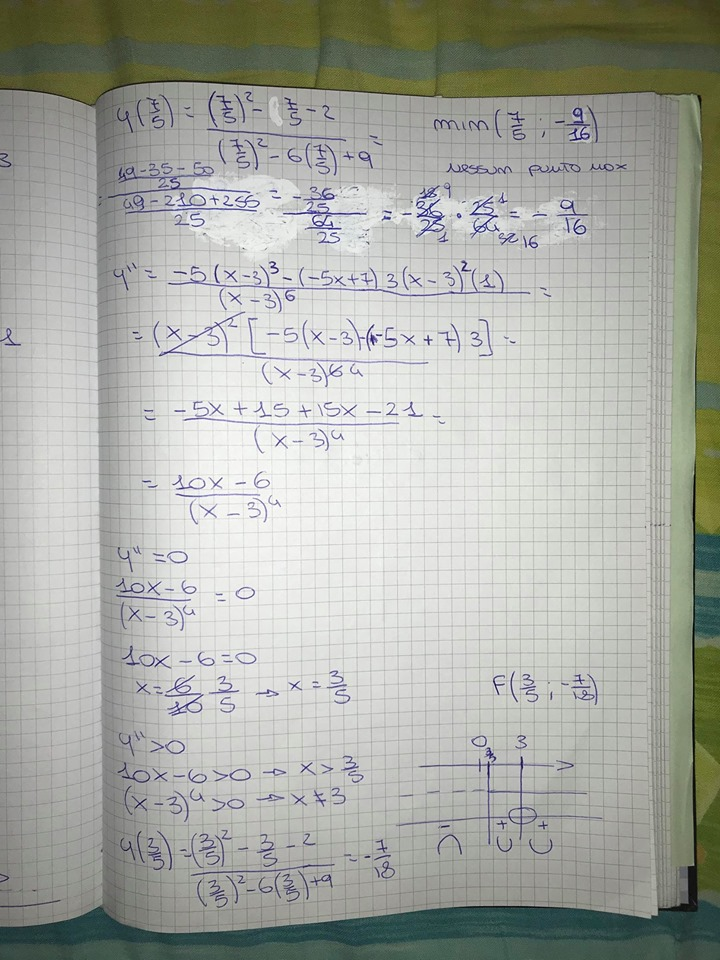 y(7/5) = ((7/5)² - (7/5 - 2)/((7/5)² - 6(7/5) + 9) =
min(7/5 ; -9/16)
nessun punto max
= ((49-35-50)/25)/((49-210+255)/25) = (-36/25)/(64/25) = -36/25 · 25/64 = -9/16
y'' = (-5(x-3)³ - (-5x+7) 3(x-3)²(1))/(x-3)⁶ =
= (x-3)² [-5(x-3)-(-5x+7)3]/(x-3)⁶ ⁴ =
= (-5x+15+15x-21)/(x-3)⁴ =
= (10x-6)/(x-3)⁴
y''=0
(10x-6)/(x-3)⁴ = 0
10x-6=0
x=6/10 3/5 → x=3/5
F(3/5 ; -7/18)
y''>0
10x-6>0 → x>3/5
(x-3)⁴>0 → x≠3
y(3/5) = ((3/5)² - 3/5 - 2)/((3/5)² - 6(3/5)+9) = -7/18
0 3
- + +
3
1